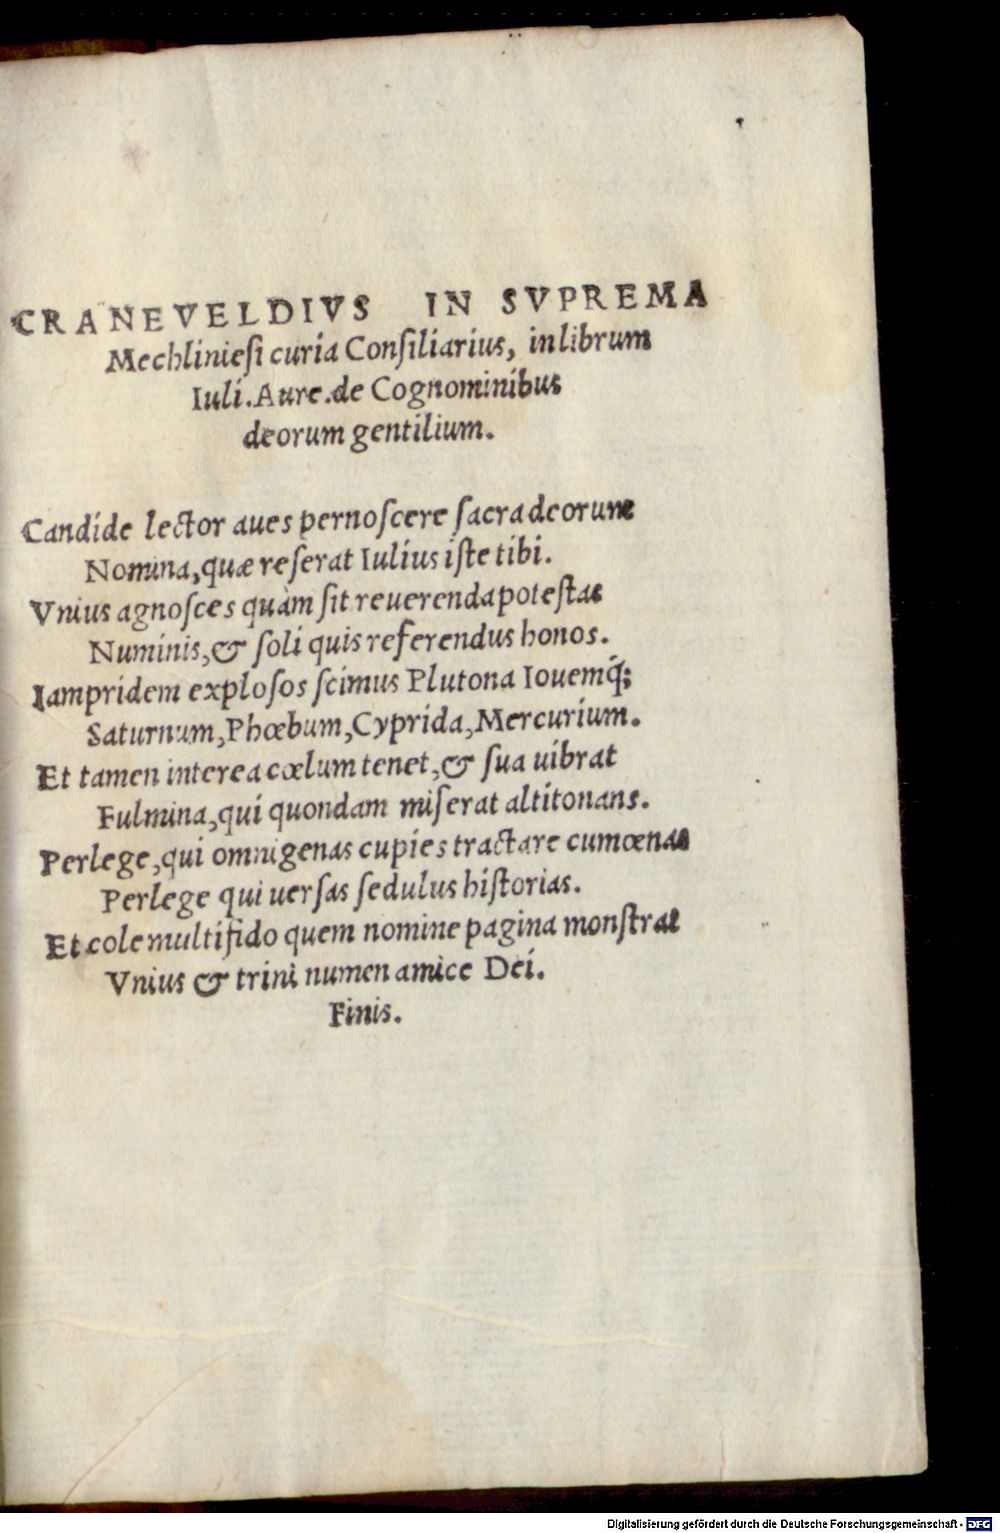 CRANEVELDIVS IN SVPREMA
Mechliniesi curia Consiliarius, in librum
Iuli. Aure. de Cognominibus
deorum gentilium.
Candide lector aues pernoscere sacra deorum
Nomina, quæ reserat Iulius iste tibi.
Vnius agnosces quàm sit reuerenda potestas
Numinis, & soli quis referendus honos.
Iampridem explosos scimus Plutona Iouemq́;
Saturnum, Phœbum, Cyprida, Mercurium.
Et tamen interea cœlum tenet, & sua uibrat
Fulmina, qui quondam miserat altitonans.
Perlege, qui omnigenas cupies tractare cumœnas
Perlege qui uersas sedulus historias.
Et cole multifido quem nomine pagina monstrat
Vnius & trini numen amice Dei.
Finis.
Digitalisierung gefördert durch die Deutsche Forschungsgemeinschaft - DFG